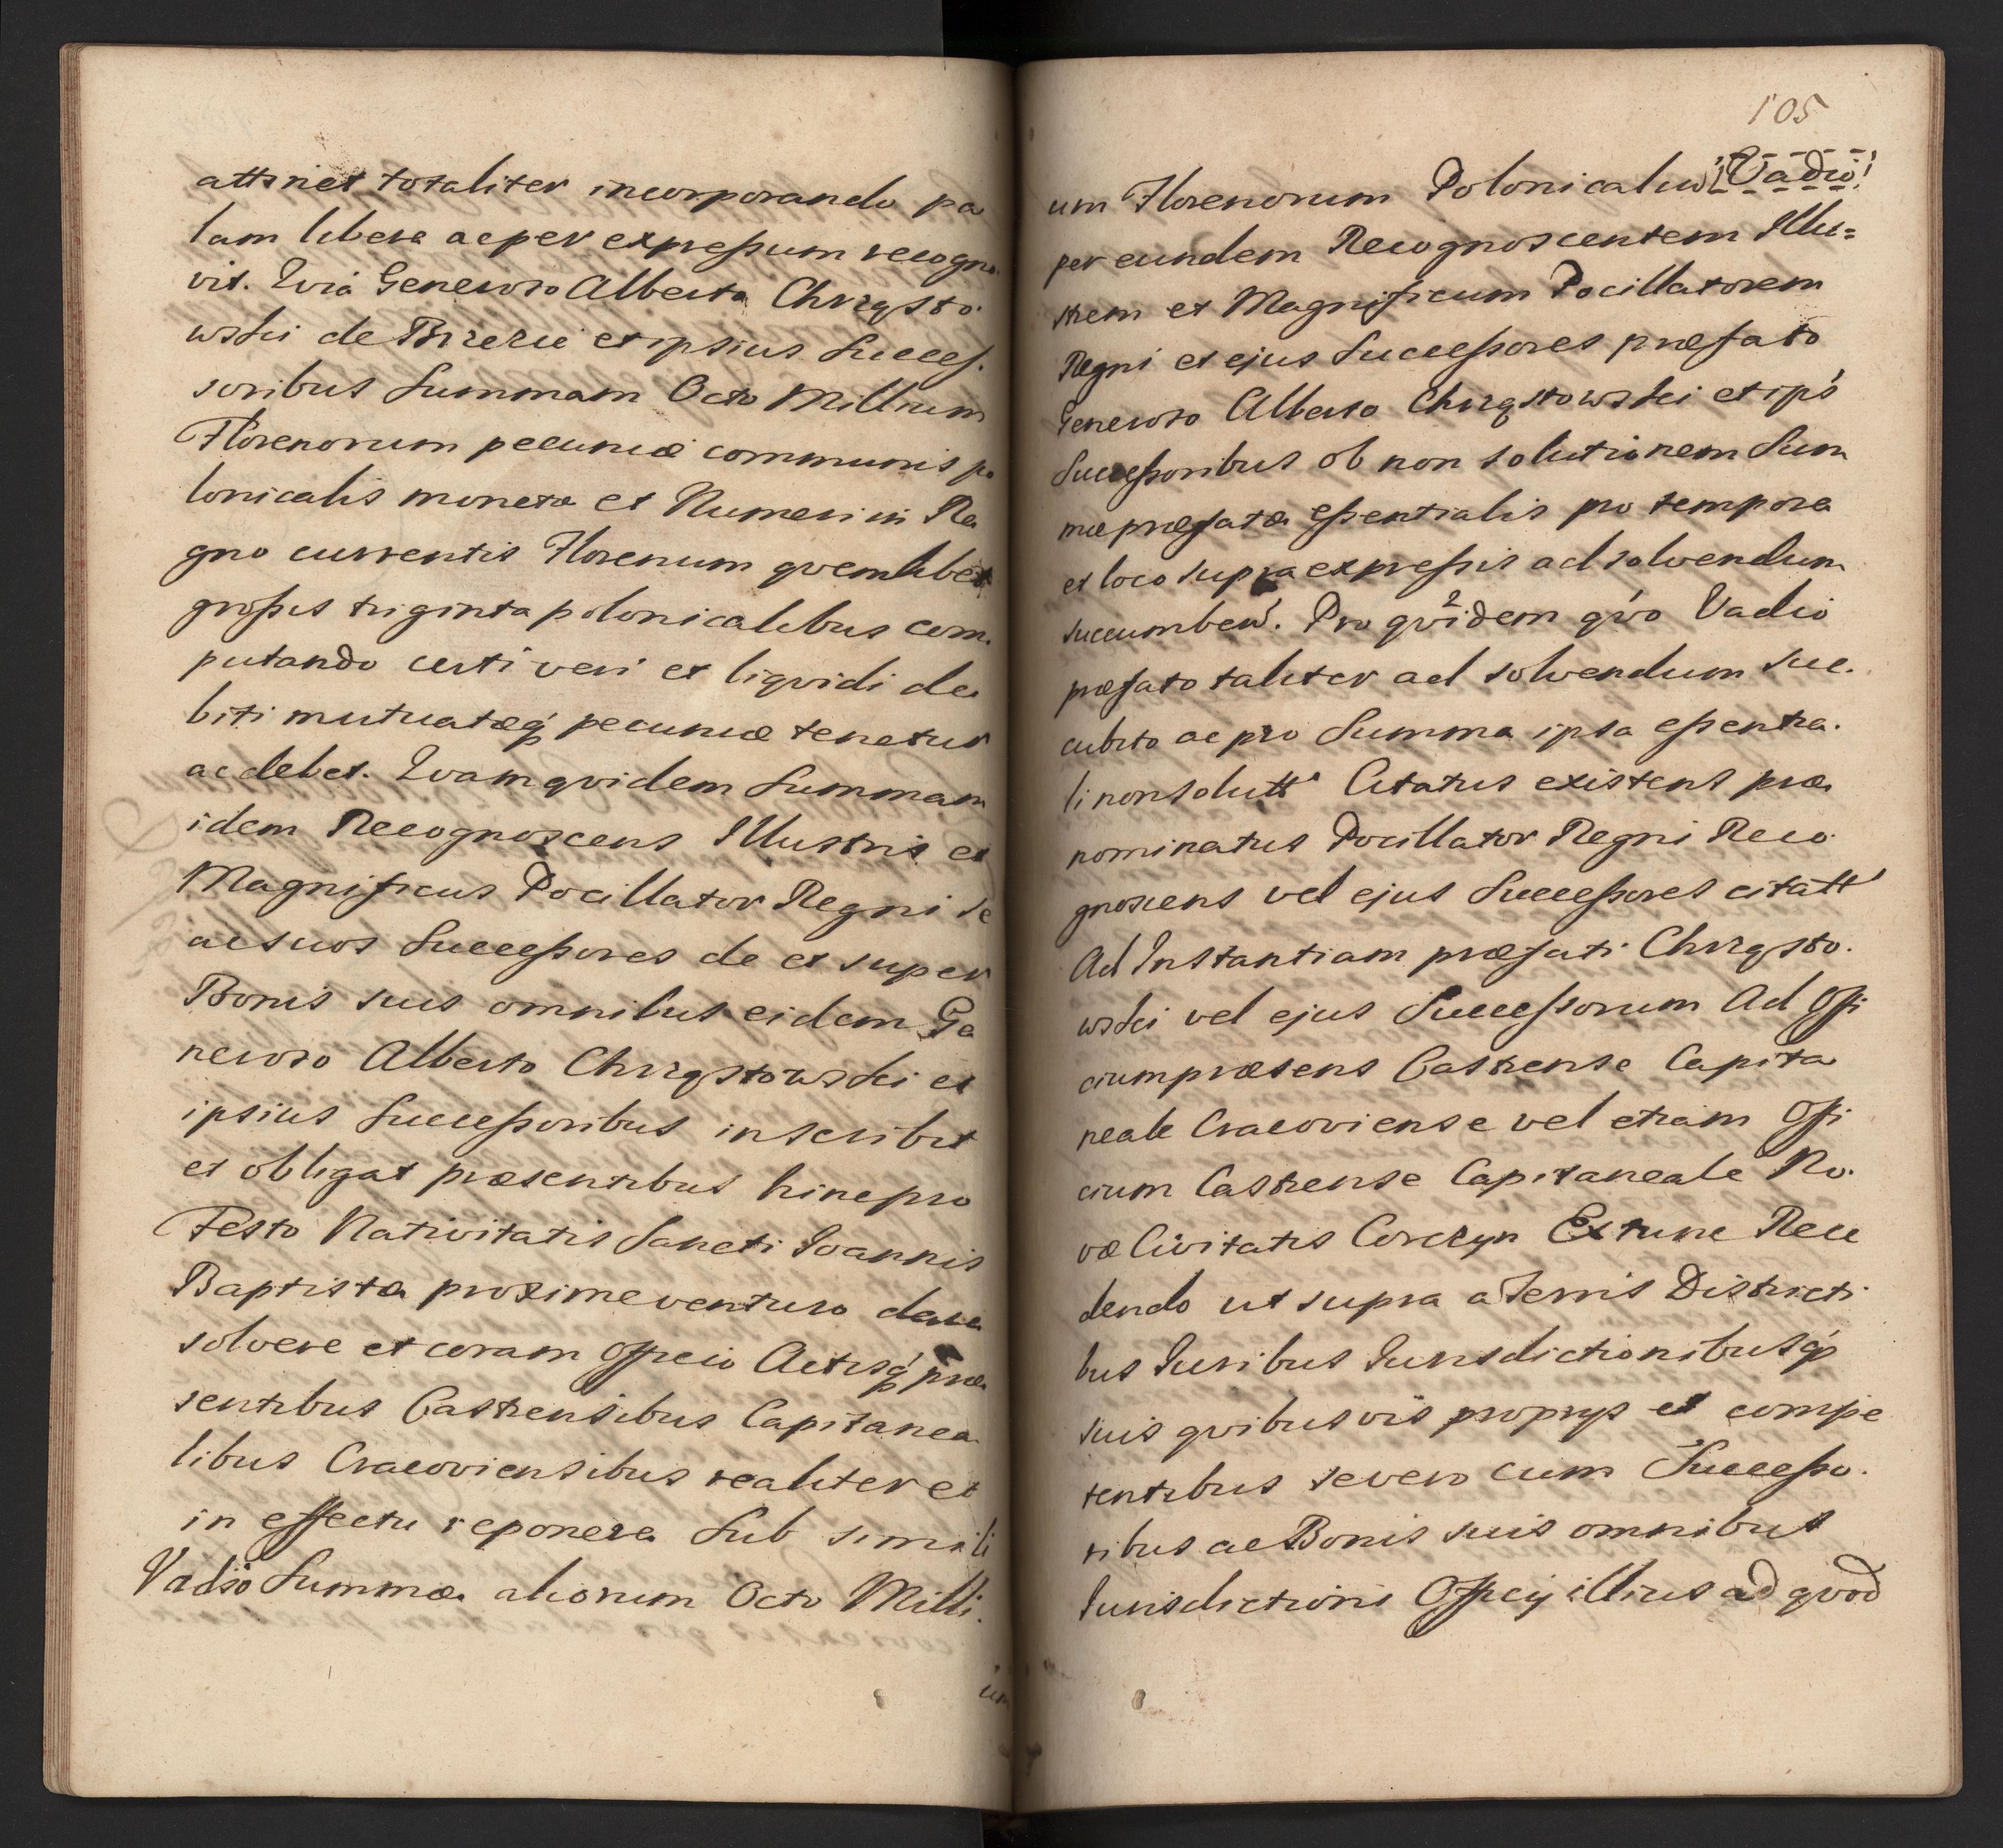 attinet totaliter incorporando pa
lam libere ac per expreßum recogno
vit. Qvia Generoso Alberto Chrząsto
wski de Brzezie et ipsius Succes
soribus Summam Octo Millium
Florenorum pecuniæ communis po
lonicalis monetæ et Numeri in Re
gno currentis Florenum qvemlibet
großis triginta polonicalibus com
putando certi veri et liqvidi de
biti mutuatæq́ pecuniæ tenetur
ac debet. Qvamqvidem Summam
idem Recognoscens Illustris et
Magnificus Pocillator Regni se
ac suos Succeßores de et super
Bonis suis omnibus eidem Ge
neroso Alberto Chrząstowski et
ipsius Succeßoribus inscribit
et obligat præsentibus hinc pro
Festo Nativitatis Sancti Joannis
Baptistæ proxime venturo dare
solvere et coram Officio Actisq́ præ
sentibus Castrensibus Capitanea
libus Cracoviensibus realiter et
in effectu reponere Sub simili
Vadio Summæ aliorum Octo Milli.
um
105
um Florenorum Polonicaliu Vadio
per eundem Recognoscentem Illu=
strem et Magnificum Pocillatorem
Regni et ejus Succeßores præfato
Generoso Alberto Chrząstowski et ips
Succeßoribus ob non solutionem Sum
mæ præfatæ eßentialis pro tempore
et loco supra expreßis ad solvendum
succumben. Pro qvidem qvo Vadio
præfato taliter ad solvendum suc.
cubito ac pro Summa ipsa eßentia.
li non solutt Citatus existens præ
nominatus Pocillator Regni Reco
gnoscens vel ejus Succeßores citatt
Ad Instantiam præfati Chrząsto.
wski vel ejus Succeßorum Ad Offi
cium præsens Castrense Capita
neale Cracoviense vel etiam Offi
cium Castrense Capitaneale No.
væ Civitatis Corczyn Ex tunc Rece
dendo ut supra a Terris Districti
bus Juribus Jurisdictionibusq́
suis qvibusvis proprys et compe
tentibus se vero cum Succeßo.
ribus ac Bonis suis omnibus
Jurisdictioni Officij illius ad qvod